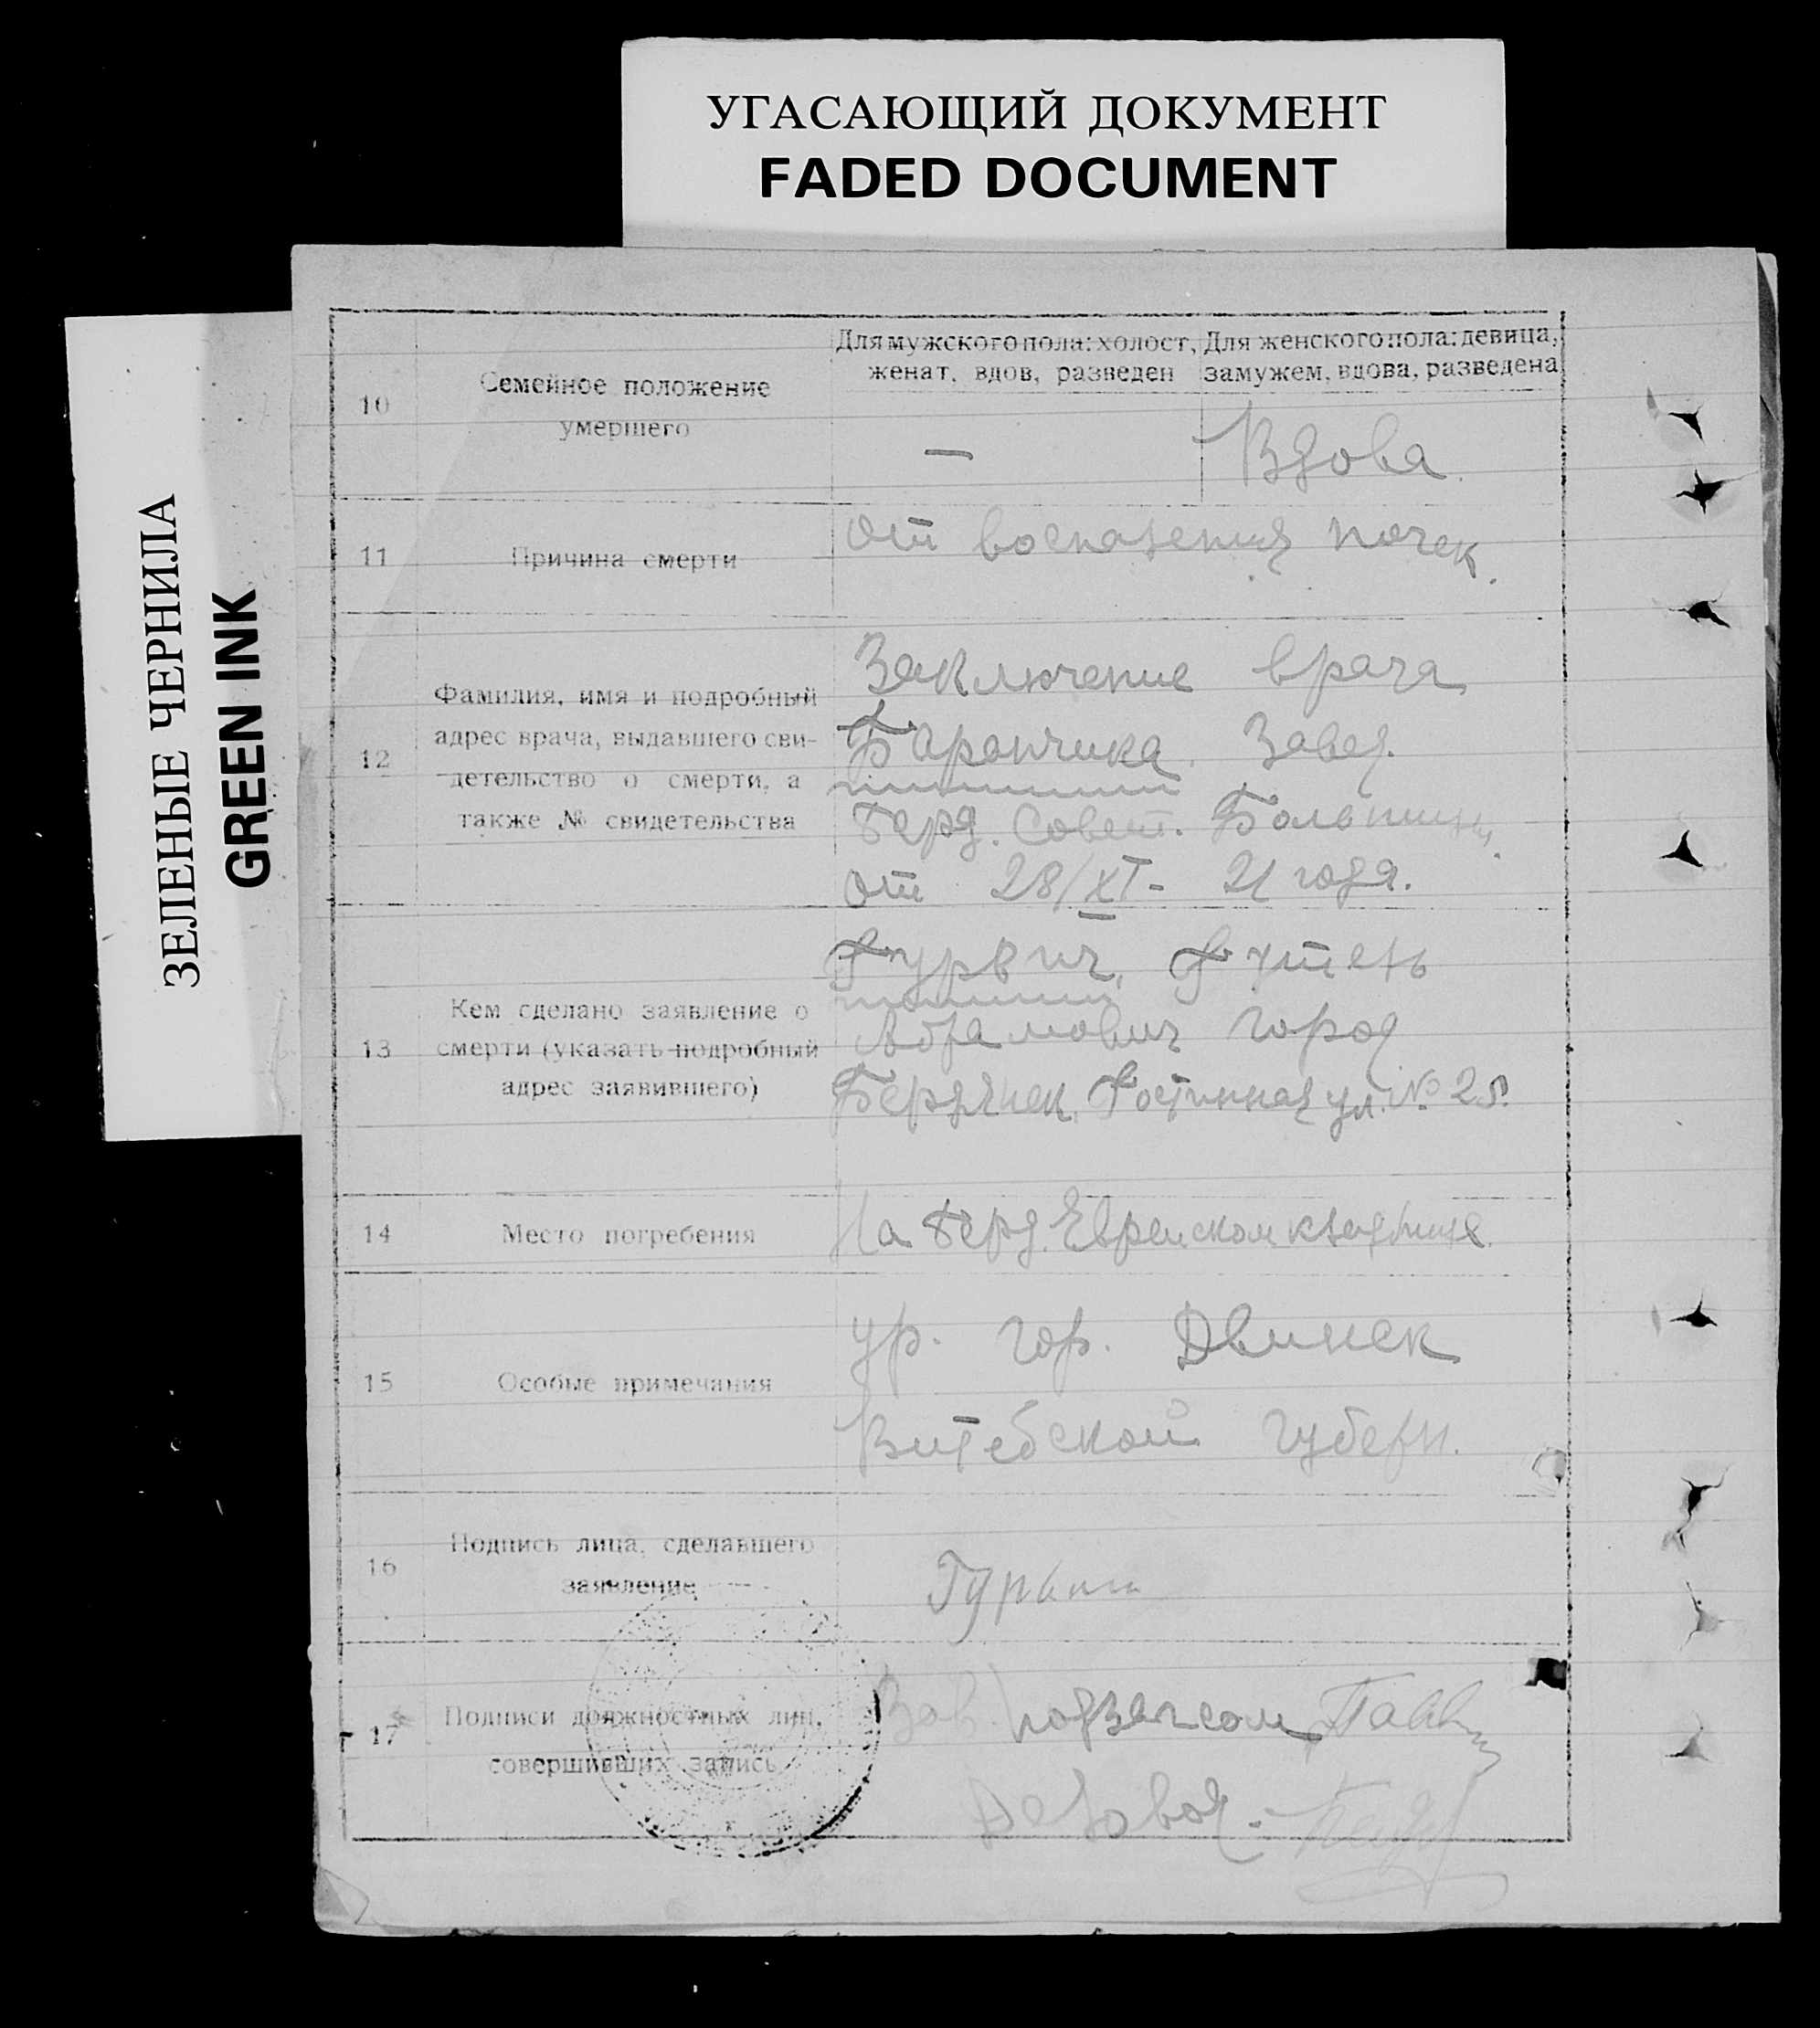 УГАСАЮЩИЙ ДОКУМЕНТ
FADED DOCUMENT
ЗЕЛЕНЫЕ ЧЕРНИЛА
GREEN INK
10
Семейное положение
умершего
Для мужского пола: холост,
женат, вдов, разведен
Для женского пола: девица,
замужем, вдова, разведена
—
Вдова.
11
Причина смерти
от воспаления почек.
12
Фамилия, имя и подробный
адрес врача, выдавшего сви-
детельство о смерти, а
также № свидетельства
Заключение врача
Баранчика. Завед.
Берд. Совет. Больниц.
от 28/XI - 21 года.
13
Кем сделано заявление о
смерти (указать подробный
адрес заявившего)
Гурвич,
Абрамович город
Бердянск, Гостинная ул. № 25.
14
Место погребения
На Берд. Еврейском кладбище.
15
Особые примечания
ур. гор. Двинск
Витебской губерн.
16
Подпись лица, сделавшего
заявление
Гурвич
17
Подписи должностных лиц,
совершивших запись
Зав. подзагсом
Деловод.